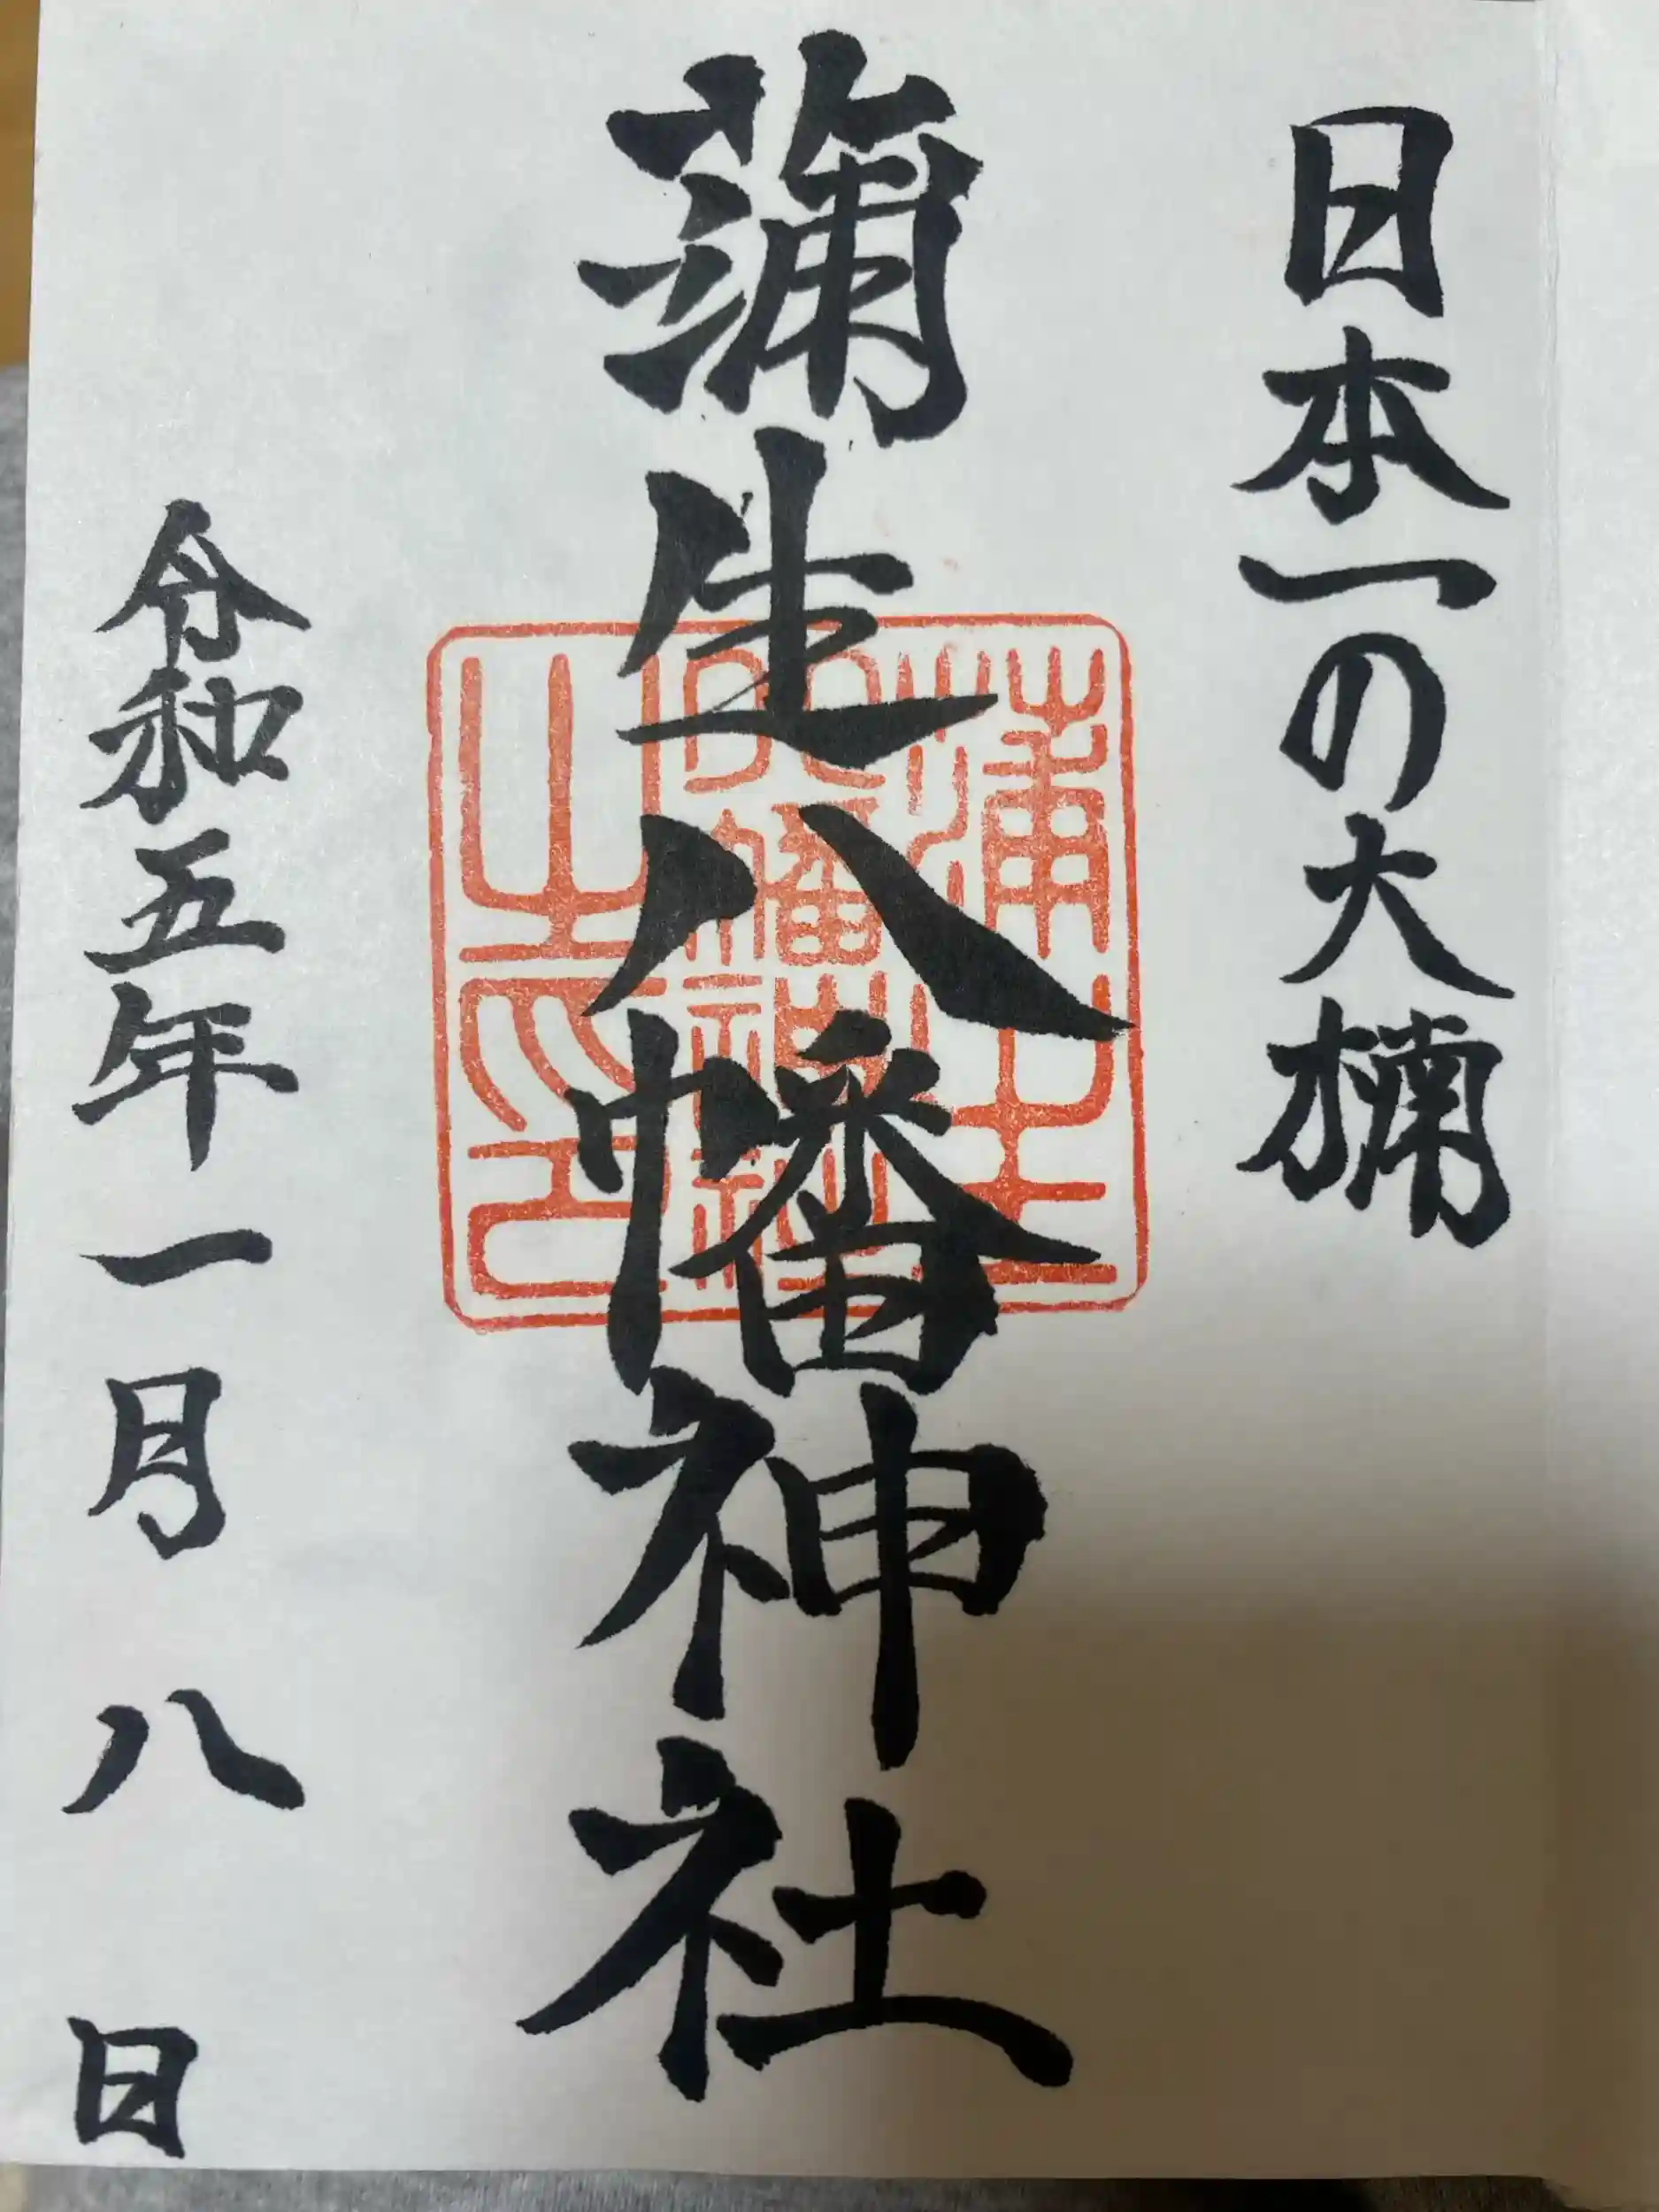 日本一の大楠
蒲生八幡神社
蒲生
八幡神社
之印
令和五年一月八日